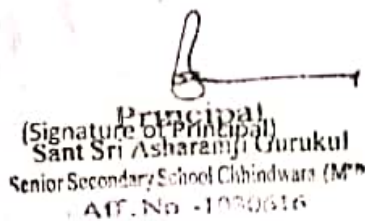 Principal
(Signature of Principal)
Sant Sri Asharamji Gurukul
Senior Secondary School Chhindwara
Aff. No -1030616